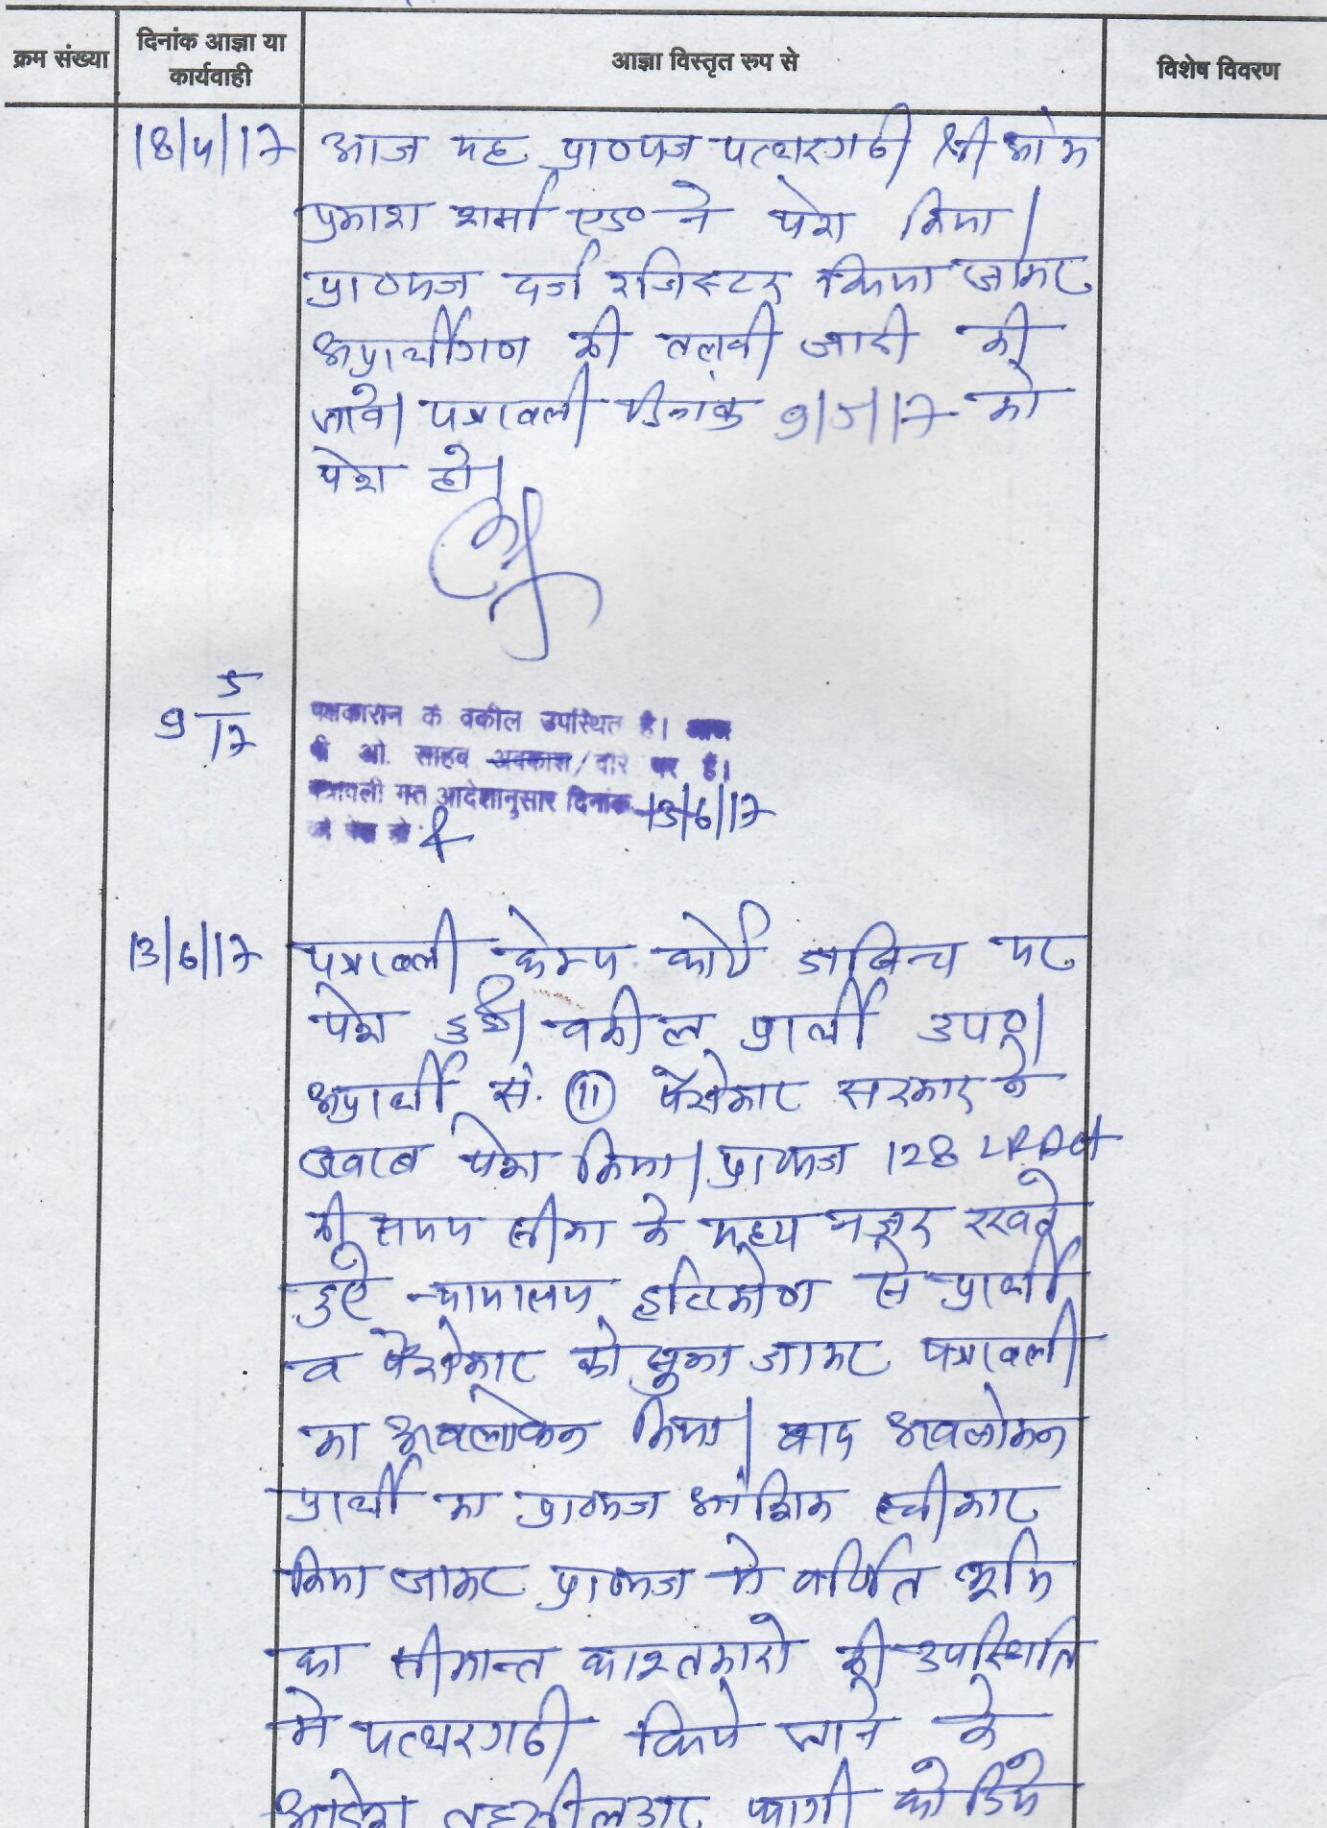 क्रम संख्या
दिनांक आज्ञा या
कार्यवाही
आज्ञा विस्तृत रुप से
विशेष विवरण
18/4/17 आज यह प्रा०पत्र पत्थरगढी श्री ओम
प्रकाश शर्मा एड० ने पेश किया|
प्रा०पत्र दर्ज रजिस्टर किया जाकर
अप्रार्थीगण की तलवी जारी की
जावे| पत्रावली दिनांक 9/5/17 को
पेश हो|
9 5/17
पक्षकारान के वकील उपस्थित है। आज
पी ओ. साहब अवकाश/दौरे पर हैं।
पत्रावली गत आदेशानुसार दिनांक 13/6/17
को पेश हो
13/6/17 पत्रावली केम्प कोर्ट पर
पेश हुई| वकील प्रार्थी उप०|
अप्रार्थी सं. 11 पैरोकार सरकार ने
जवाब पेश किया| प्रा०पत्र 128 LR Act
की समय सीमा के मध्य नजर रखते
हुऐ न्यायालय से प्रार्थी
व पैरोकार को सुना जाकर पत्रावली
का अवलोकन किया| बाद अवलोकन
प्रार्थी का प्रा०पत्र आंशिक स्वीकार
किया जाकर प्रा०पत्र मे वर्णित भूमि
का सीमान्त काश्तकारो की उपस्थिति
मे पत्थरगढी किये जाने के
आदेश तहसीलदार फागी को दिये